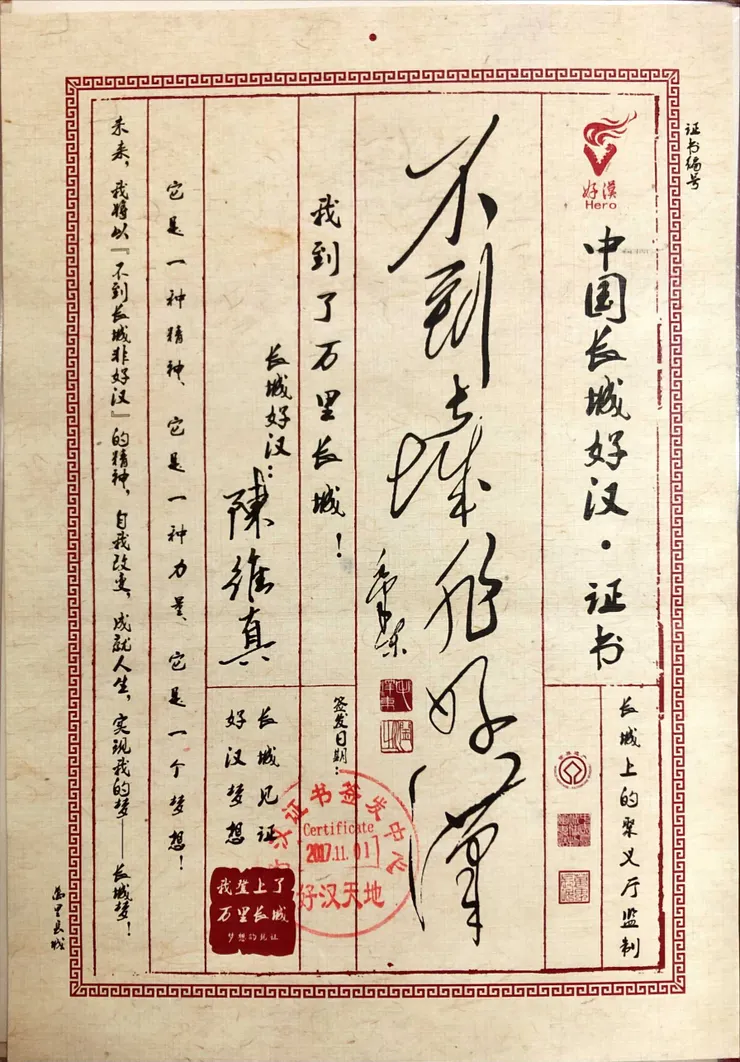 证书编号
好漠
Hero
中国长城好汉·证书
长城上的聚义厅监制
不到长城非好漢
毛泽东
我到了万里长城！
签发日期：
好汉证书签发中心
Certificate
2017.11.01
好汉天地
长城好汉：
陳維真
长城见证
好汉梦想
我登上了
万里长城
梦想的见证
它是一种精神、它是一种力量、它是一个梦想！
未来，我将以『不到长城非好汉』的精神，自我改变，成就人生，实现我的梦——长城梦！
万里长城